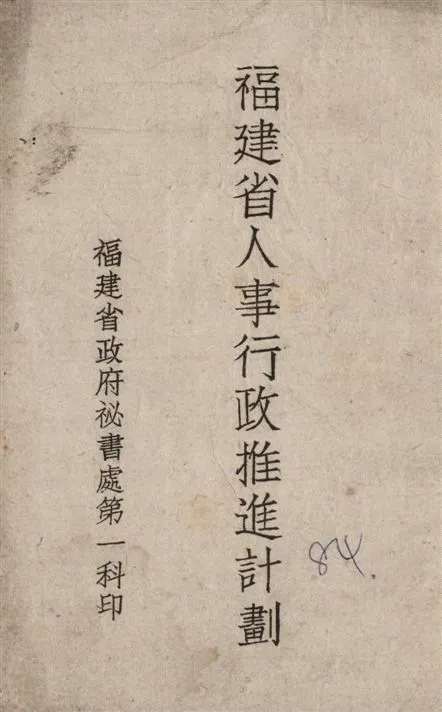 福建省人事行政推進計劃
福建省政府祕書處第一科印
84